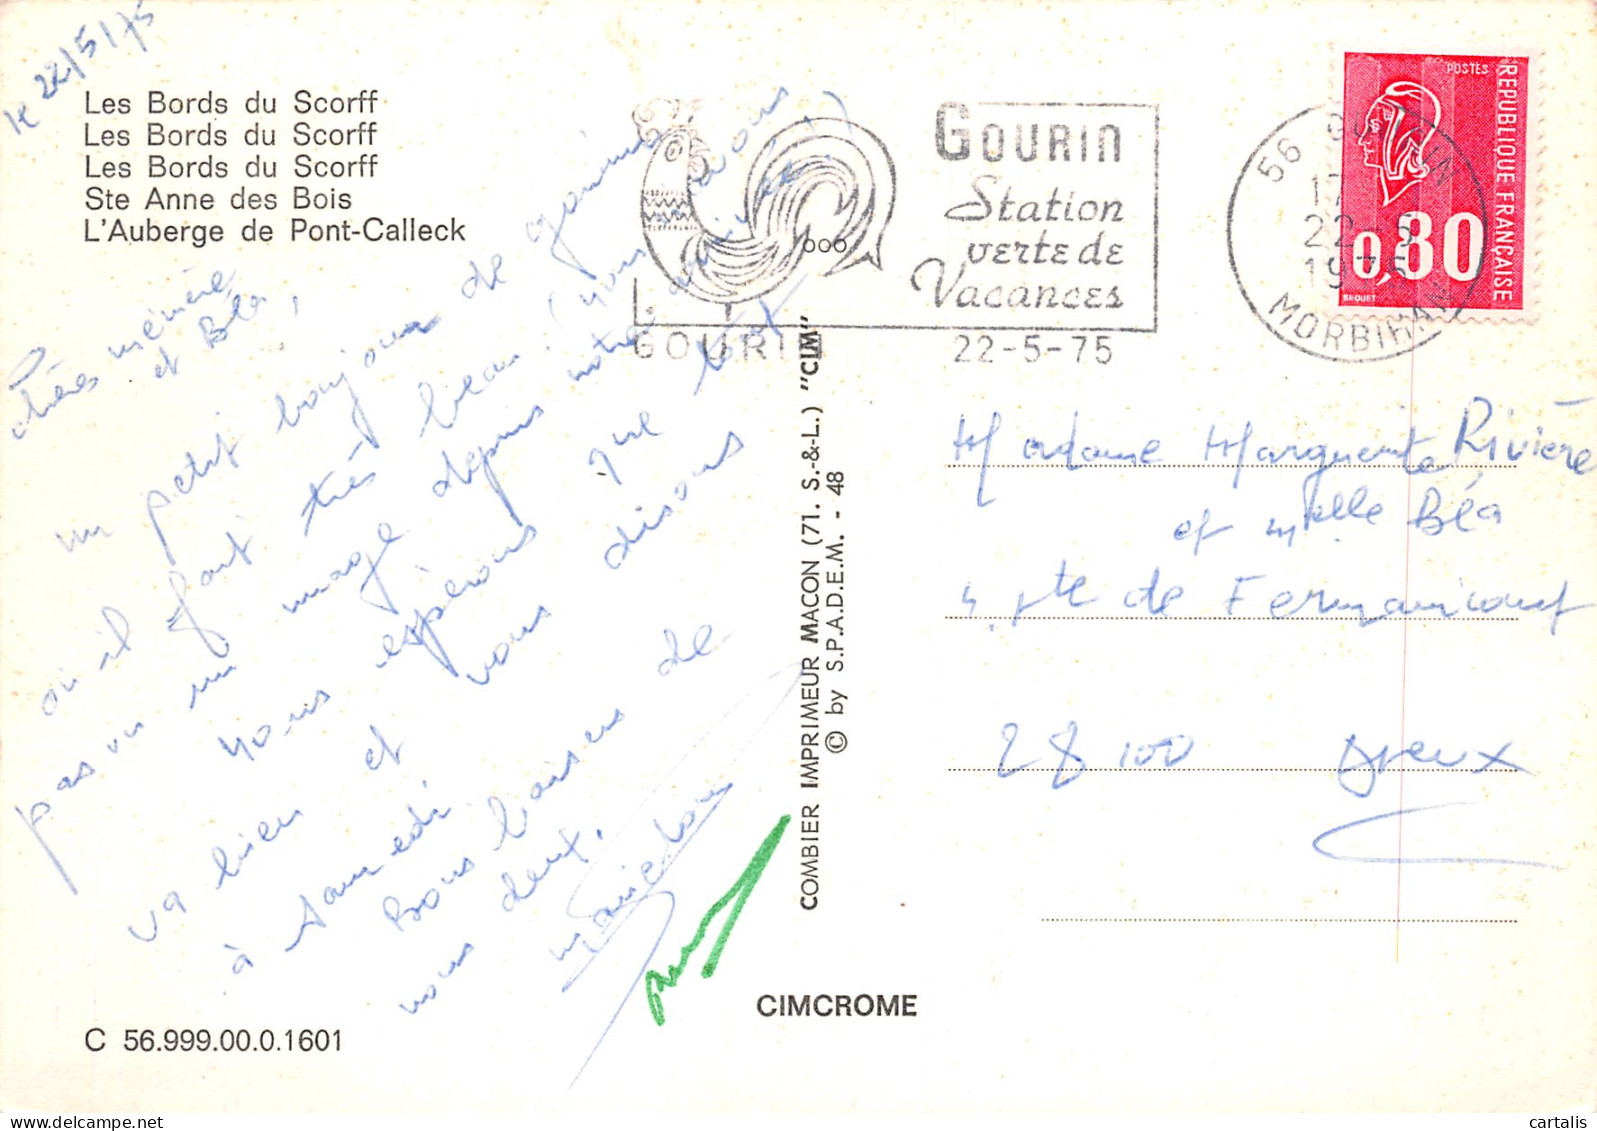 le 22/5/75
Les Bords du Scorff
Les Bords du Scorff
Les Bords du Scorff
Ste Anne des Bois
L'Auberge de Pont-Calleck
chères mémère
et Béa,
un petit bonjour de gourin
où il fait très beau ! (nous avons
pas vu un nuage depuis notre arrivée !)
nous espérons que tout
va bien et vous disons
à samedi
Bons baisers de
nous deux.
C 56.999.00.0.1601
CIMCROME
COMBIER IMPRIMEUR MACON (71. S.-&-L.) "CIM"
© by S.P.A.D.E.M. - 48
GOURIN
Station
verte de
Vacances
GOURIN 22-5-75
56 GOURIN
17
22-5
1975
MORBIHAN
POSTES
REPUBLIQUE FRANÇAISE
0,80
BEQUET
Madame Marguerite Rivière
et Melle Béa
de Fermaincourt
28100 Dreux
cartalis